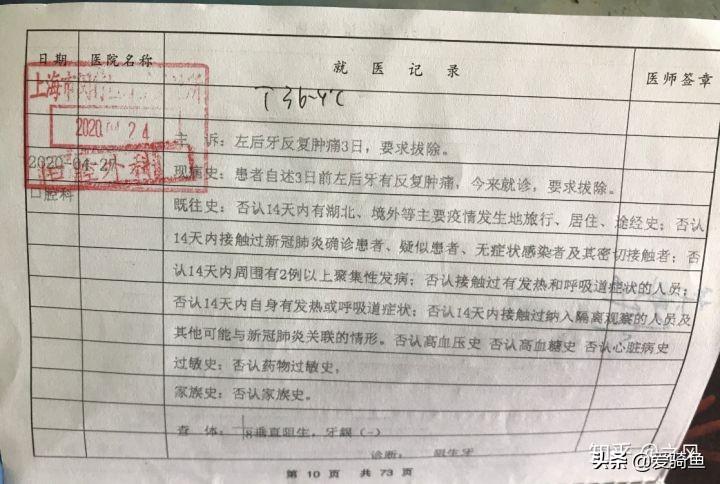 日期 医院名称 就医记录 医师签章
上海市
T36.4℃
2020 24
主 诉：左后牙反复肿痛3日，要求拔除。
2020-04-2
现病史：患者自述3日前左后牙有反复肿痛，今来就诊，要求拔除。
口腔科
既往史：否认14天内有湖北、境外等主要疫情发生地旅行、居住、途经史；否认
14天内接触过新冠肺炎确诊患者、疑似患者、无症状感染者及其密切接触者；否
认14天内周围有2例以上聚集性发病；否认接触过有发热和呼吸道症状的人员；
否认14天内自身有发热或呼吸道症状；否认14天内接触过纳入隔离观察的人员及
其他可能与新冠肺炎关联的情形。否认高血压史 否认高血糖史 否认心脏病史
过敏史：否认药物过敏史，
家族史：否认家族史。
查 体： 8垂直阻生，牙龈（-）
诊断： 阻生牙
第 10 页 共 73 页
知乎
头条 @爱骑鱼